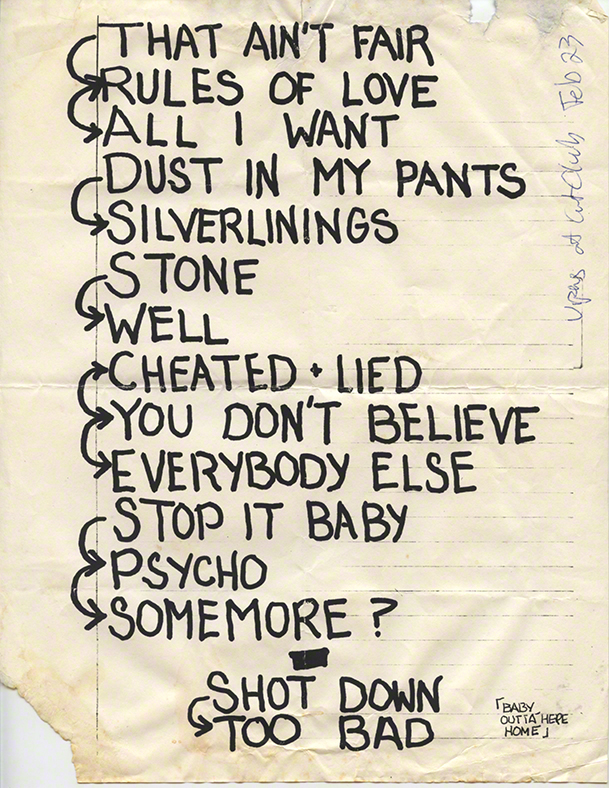 THAT AIN'T FAIR
RULES OF LOVE
ALL I WANT
DUST IN MY PANTS
SILVERLININGS
STONE
WELL
CHEATED + LIED
YOU DON'T BELIEVE
EVERYBODY ELSE
STOP IT BABY
PSYCHO
SOMEMORE ?
SHOT DOWN
TOO BAD
「BABY
OUTTA HERE
HOME」
at Club Feb 23